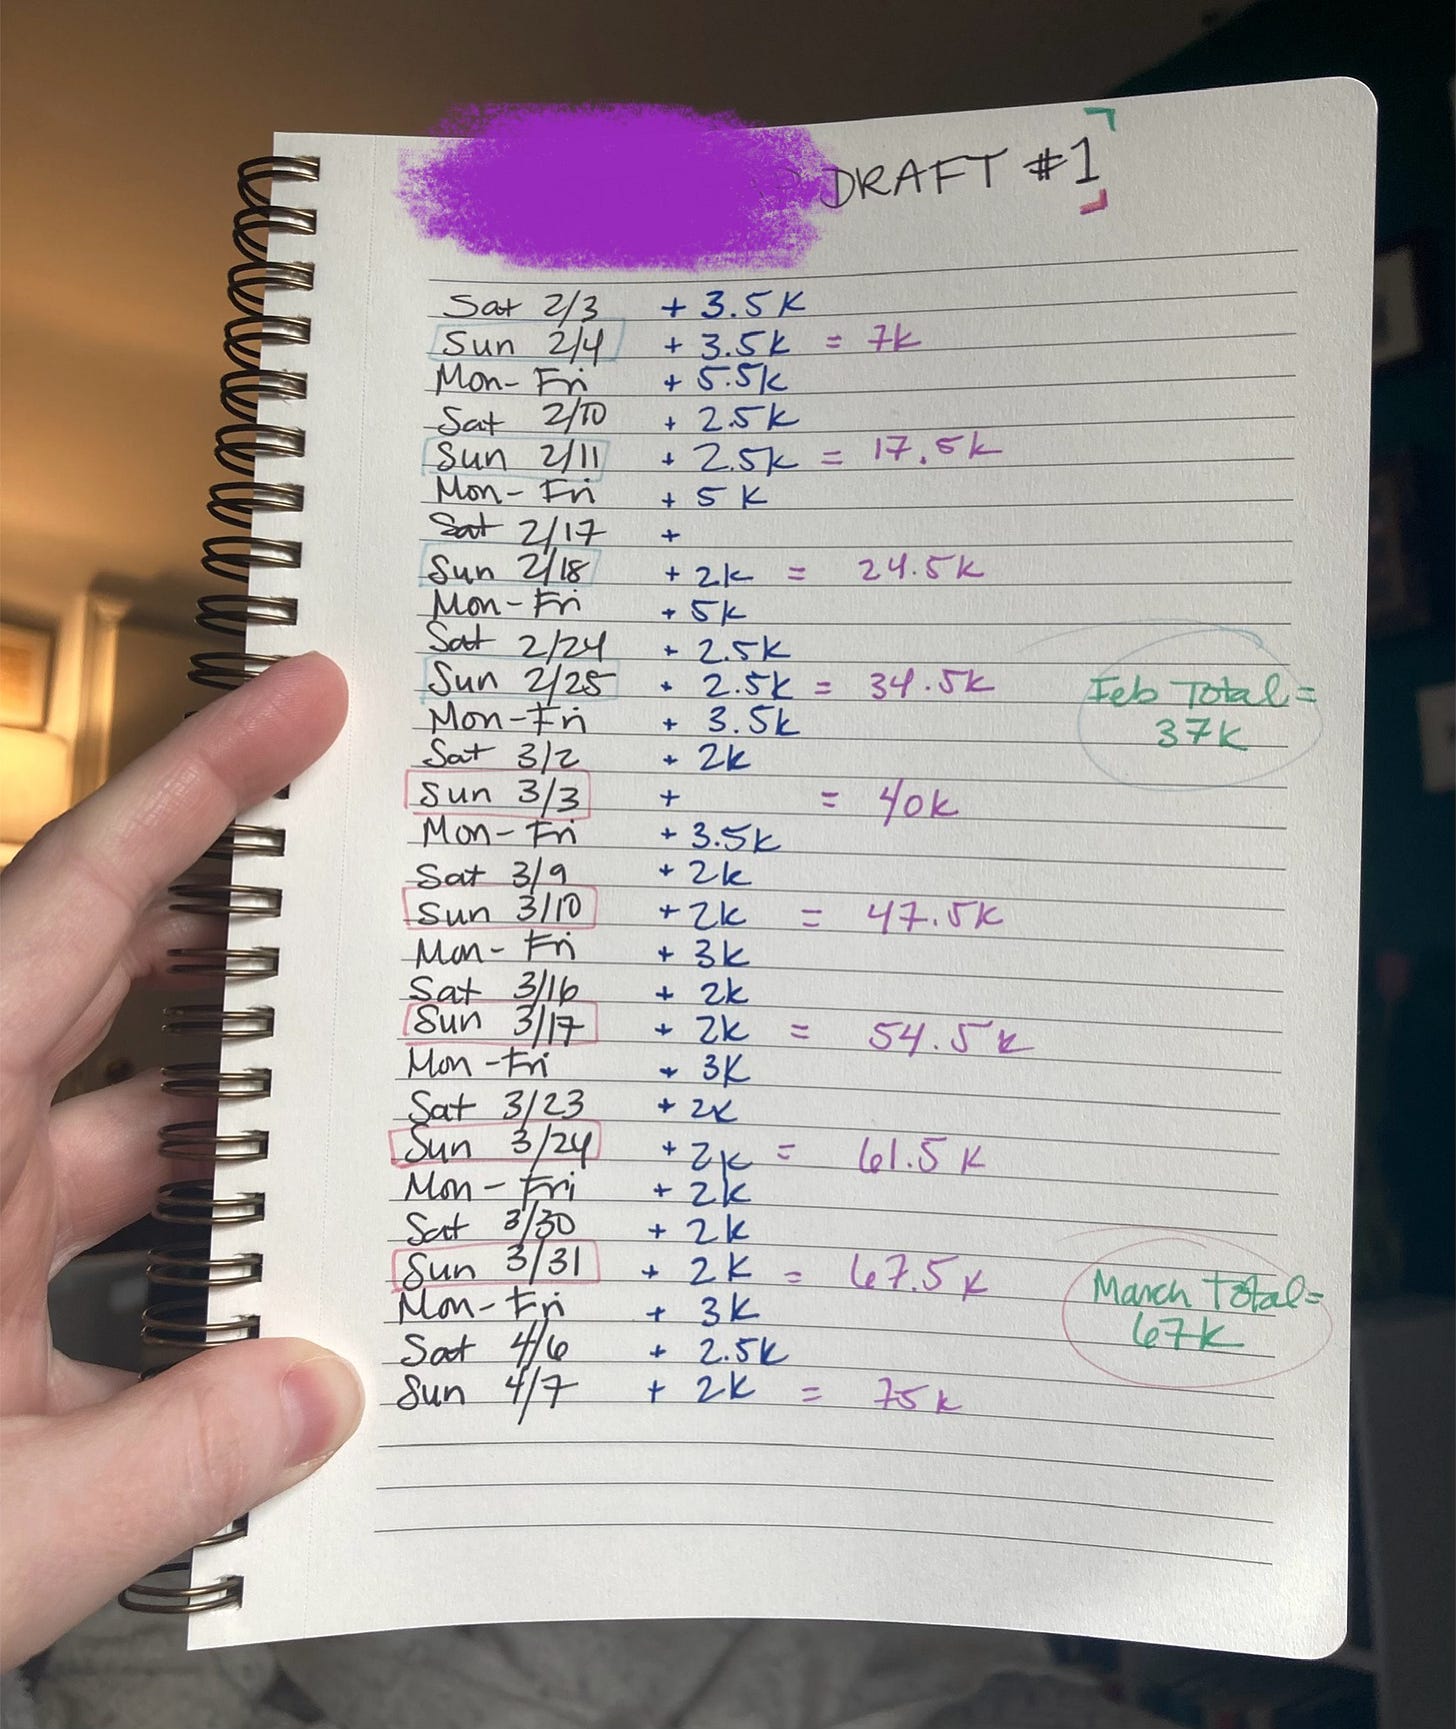 DRAFT #1
Sat 2/3 + 3.5k
Sun 2/4 + 3.5k = 7k
Mon-Fri + 5.5k
Sat 2/10 + 2.5k
Sun 2/11 + 2.5k = 17.5k
Mon-Fri + 5k
Sat 2/17 +
Sun 2/18 + 2k = 24.5k
Mon-Fri + 5k
Sat 2/24 + 2.5k
Sun 2/25 + 2.5k = 34.5k
Feb Total =
37k
Mon-Fri + 3.5k
Sat 3/2 + 2k
Sun 3/3 + = 40k
Mon-Fri + 3.5k
Sat 3/9 + 2k
Sun 3/10 + 2k = 47.5k
Mon-Fri + 3k
Sat 3/16 + 2k
Sun 3/17 + 2k = 54.5k
Mon-Fri + 3k
Sat 3/23 + 2k
Sun 3/24 + 2k = 61.5k
Mon-Fri + 2k
Sat 3/30 + 2k
Sun 3/31 + 2k = 67.5k
March Total =
67k
Mon-Fri + 3k
Sat 4/6 + 2.5k
Sun 4/7 + 2k = 75k